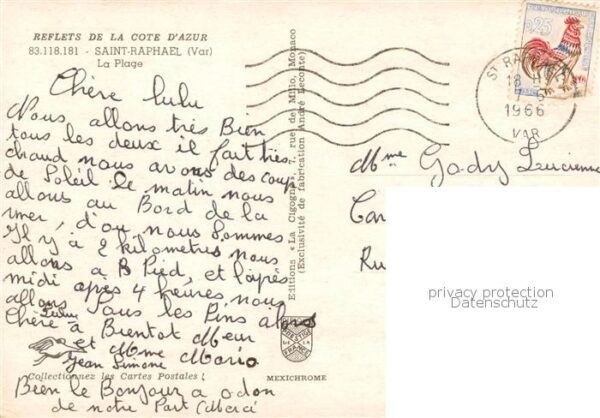 REFLETS DE LA COTE D'AZUR
83.118.181 - SAINT-RAPHAEL (Var)
La Plage
Chère lulu
Nous allons très Bien
tous les deux il fait très
chaud nous avons des coup
de Soleil le matin nous
allons au Bord de la
mer, d'ou nous Sommes
Il y à 2 kilometres nous
allons a B Pied, et l'après
midi après 4 heures nous
allons Sous les Pins alors
Chère Lulu a Bientot Meur
et Mme Mario
Jean Simone
Collectionnez les Cartes Postales !
Bien le Bonjour a odon
de notre Part (Merci
Editions «La Cigogne», 7, rue de Millo, Monaco
(Exclusivité de fabrication André Leconte)
MEXICHROME
0,25
ST RAPHAEL
18 H
1966
VAR
Mme Gody Lucienne
Car
Ru
privacy protection
Datenschutz